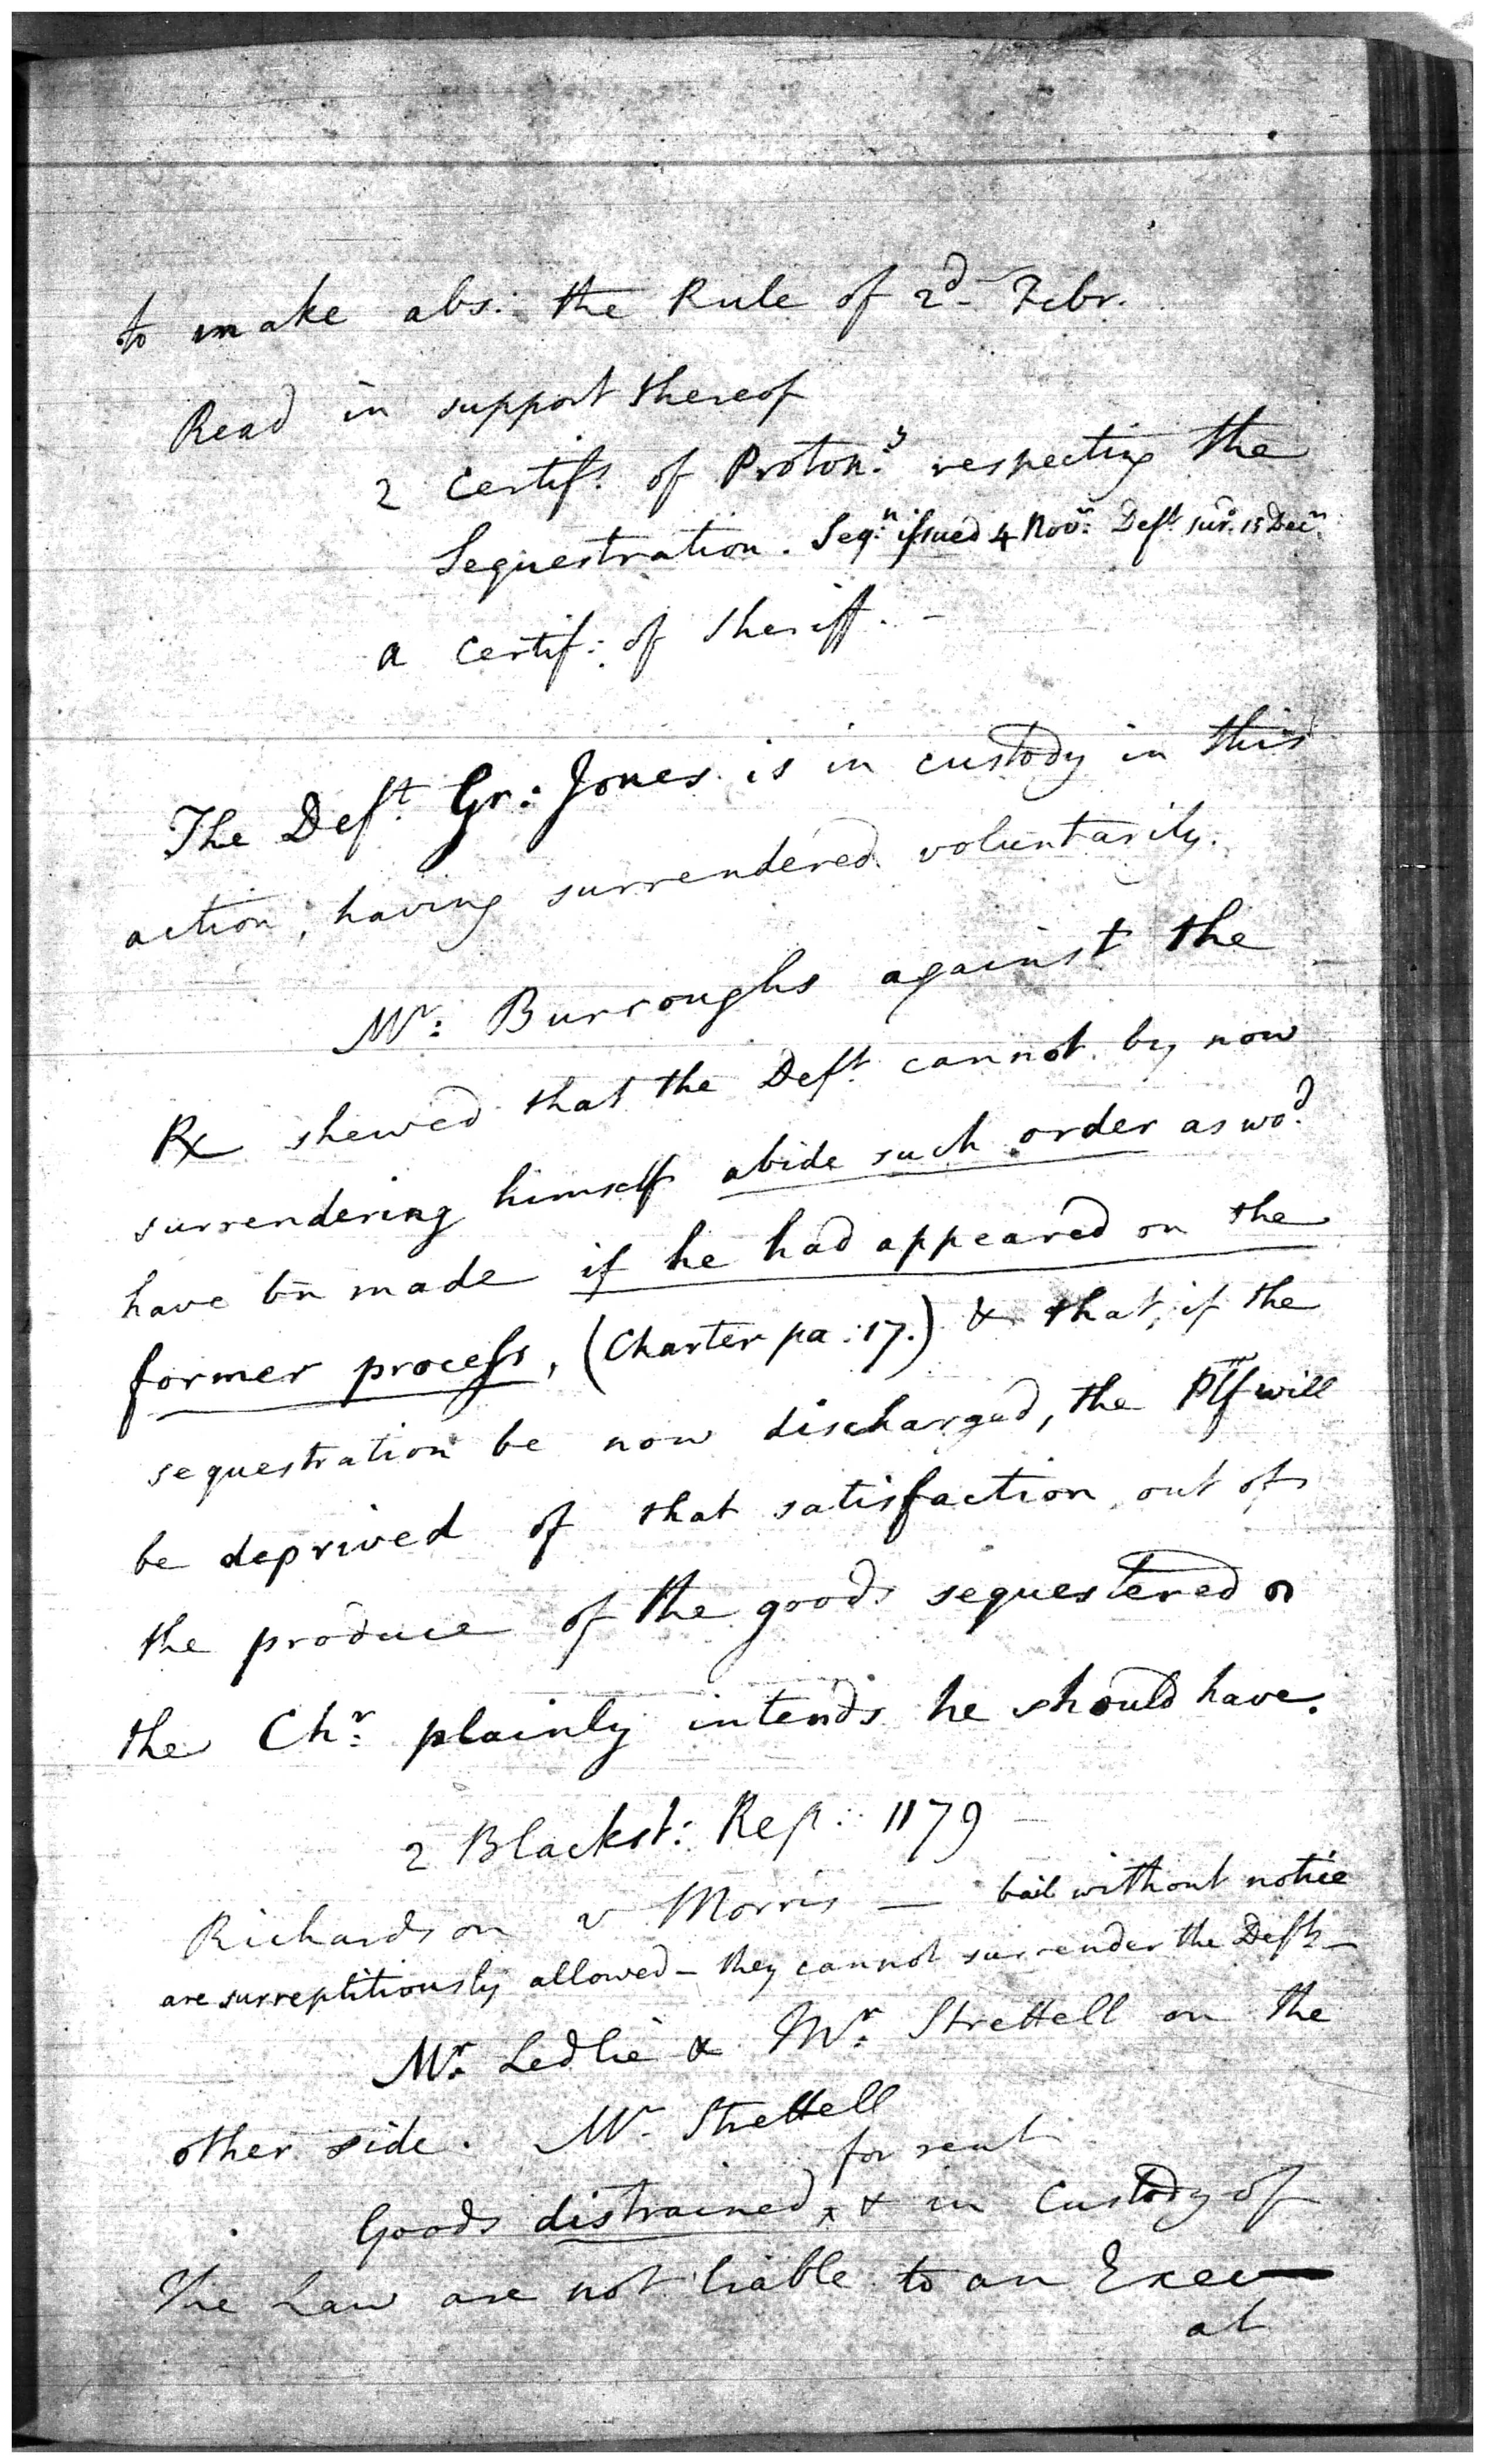 to make abs: the Rule of 2d Febr.
Read in support thereof
2 Certifs. of Proton:y respecting the
Sequestration. Seqn: issued 4 Novr: Deft. surd. 15 Decr:
a Certif: of Sheriff. -
The Deft. Gr: Jones is in custody in this
action, having surrendered voluntarily.
Mr: Burroughs against the
Rx shewed that the Deft. cannot by now
surrendering himself abide such order as wod.
have bn made if he had appeared on the
former process, (Charter pa: 17.) & that, if the
sequestration be now discharged, the Ptf will
be deprived of that satisfaction out of
the produce of the goods sequestered
the Chr: plainly intends he should have.
2 Blackst: Rep: 1179 -
Richardson v Morris — bail without notice
are surreptitiously allowed - they cannot surrender the Defts -
Mr. Ledlie & Mr: Strettell on the
other side. Mr Strettell
for rent
Goods distrained ^ & in Custody of
the Law are not liable to an Execu
at